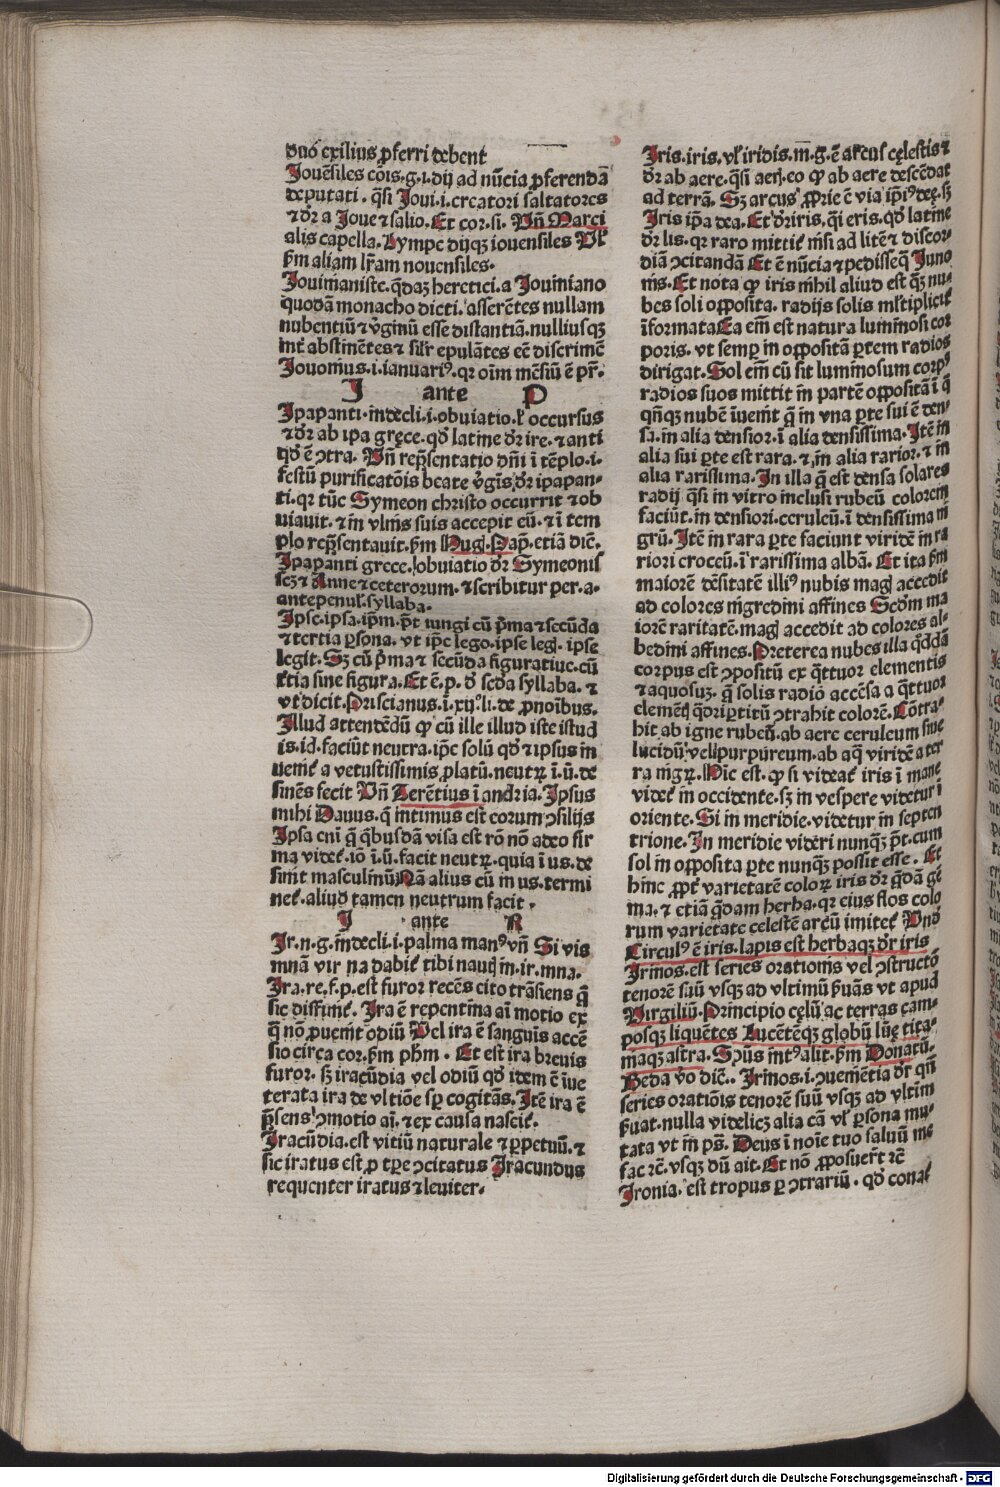 duo exilius ꝑferri debent
Iouẽsiles cõis.g.i.dij ad nũcia ꝓferendã
deputati. q̃si Ioui.i.creatori saltatores
⁊ dr̃ a Ioue ⁊ salio. Et cor.si. Vñ Marci
alis capella. Lympe dijqꝫ iouensiles Vl̃
ẜm aliam lr̃am nouensiles.
Iouinianiste. q̃daꝫ heretici. a Iouiniano
quodã monacho dicti. asserẽtes nullam
nubentiũ ⁊ ṽginũ esse distantiã. nulliusqꝫ
int̃ abstinẽtes ⁊ silr̃ epulãtes eẽ discrimẽ
Iouonius.i.ianuariꝰ. qr oim̃ mẽsiũ ẽ pr̃.
I ante P
Ipapanti. indecli.i.obuiatio. ł occursus
⁊ dr̃ ab ipa gręce. qđ latine dr̃ ire. ⁊ anti
qđ ẽ ↄtra. Vñ rep̃sentatio dñi ĩ tẽplo.i.
festũ purificatõis beate ṽgĩs. dr̃ ipapan-
ti. qr tũc Symeon christo occurrit ⁊ ob
uiauit. ⁊ in vlnis suis accepit eũ. ⁊ ĩ tem
plo rep̃sentauit. ẜm Hug. Pap̃. etiã dic̃.
Ipapanti grece. obuiatio dr̃ Symeonis
scꝫ ⁊ Anne ⁊ ceterorum. ⁊ scribitur per.a.
antepenul̃. syllaba.
Ipse. ipsa. ip̃m. p̃t iungi cũ p̃ma ⁊ secũda
⁊ tertia ꝑsona. vt ip̃e lego. ipse legꝭ. ipse
legit. Sꝫ cũ p̃ma ⁊ secũda figuratiue. cũ
t̃tia sine figura. Et ẽ.p. đ scđa syllaba. ⁊
vt dicit. Priscianus. ĩ.xijº.li. de ꝓnoĩbus.
Illud attendẽdũ ꝙ cũ ille illud iste istud
is. id. faciũt neutra. ip̃e solũ qđ ⁊ ipsus in
ueniť a vetustissimis platũ. neutꝝ ĩ.ũ. de
sinẽs fecit Vñ Terẽtius ĩ andria. Ipsus
mihi Dauus. q̃ intimus est eorum ↄsilijs
Ipsa eni q̃ q̃busdã visa est rõ nõ adeo fir
ma videť. iõ ĩ.ũ. facit neutꝝ. quia ĩ us. de
sinit masculinũ Nã alius cũ in us. termi
neť. aliud tamen neutrum facit.
I ante R
Ir.n.g. indecli.i.palma manꝰ vñ Si vis
mnã vir na dabiť tibi nauꝭ in.ir.mna.
Ira.re.f.p.est furor recẽs cito trãsiens q̃
sic diffiniť. Ira ẽ repentina ai motio ex
q̃ nõ ꝓuenit odiũ Vel ira ẽ sanguis accẽ
sio circa cor. ẜm pħm. Et est ira breuis
furor. sꝫ iracũdia vel odiũ qđ idem ẽ iue
terata ira de vltiõe sp̃ cogitãs. Itẽ ira ẽ
p̃sens ↄmotio ai. ⁊ ex causa nasciť.
Iracũdia. est vitiũ naturale ⁊ ꝑpetuũ. ⁊
sic iratus est ꝓ tp̃e ↄcitatus Iracundus
frequenter iratus ⁊ leuiter.
Iris. iris. vl̃ iridis. m̃.g. ẽ arcuſ cęlestis ⁊
dr̃ ab aere. q̃si aeri. eo ꝙ ab aere descẽdat
ad terrã. Sꝫ arcus ꝓprie ẽ via ip̃iꝰ deę. sꝫ
Iris ip̃a dea. Et dr̃ iris. q̃i eris. qđ latine
dr̃ lis. qr raro mittiť nisi ad litẽ ⁊ discor-
diã ↄcitandã Et ẽ nũcia ⁊ pedisseq̃ Iuno
nis. Et nota ꝙ iris nihil aliud est q̃ꝫ nu-
bes soli opposita. radijs solis ml̃tipliciť
ĩformata Ea em̃ est natura luminosi cor
poris. vt semꝑ in oppositã ꝑtem radios
dirigat. Sol em̃ cũ sit luminosum corpꝰ
radios suos mittit in partẽ oppositã ĩ q̃
qñqꝫ nubẽ ĩuenit q̃ in vna ꝑte sui ẽ den-
sa. in alia densior. ĩ alia densissima. Itẽ in
alia sui ꝑte est rara. ⁊ in alia rarior. ⁊ in
alia rarissima. In illa q̃ est densa solares
radij q̃si in vitro inclusi rubeũ colorem
faciũt. in densiori. ceruleũ. ĩ densissima ni
grũ. Itẽ in rara ꝑte faciunt viridẽ in ra
riori croceũ. ĩ rarissima albã. Et ita ẜm
maiorẽ dẽsitatẽ illiꝰ nubis magꝭ accedit
ad colores nigredini affines Scđm ma
iorẽ raritatẽ. magꝭ accedit ad colores al-
bedini affines. Preterea nubes illa q̃ddã
corpus est ↄpositũ ex q̃ttuor elementis
⁊ aquosuꝫ. q̃ solis radio accẽsa a q̃ttuor
elemẽtꝭ q̃dripertitũ ↄtrahit colorẽ. Cõtra-
hit ab igne rubeũ. ab aere ceruleum siue
lucidũ vel purpureum. ab aq̃ viridẽ a ter
ra nigꝝ. Hic est. ꝙ si videať iris ĩ mane
videť in occidente. sꝫ in vespere videtur ĩ
oriente. Si in meridie. videtur in septen
trione. In meridie videri nunqꝫ p̃t. cum
sol in opposita ꝑte nunqꝫ possit esse. Et
hinc ꝓpť varietatẽ coloꝝ iris dr̃ q̃dã gẽ
ma. ⁊ etiã q̃dam herba. qr eius flos colo
rum varietate celestẽ arcũ imiteť Vñđ
Circulꝰ ẽ iris. lapis est herbaqꝫ dr̃ iris
Irinos. est series orationis vel ↄstructõ
tenorẽ suũ vsqꝫ ad vltimũ ẜuãs vt apud
Virgiliũ. Principio cęlũ ac terras cam-
posqꝫ liquẽtes Lucẽtẽqꝫ globũ lũę tita-
niaqꝫ astra. Sp̃us intꝰ alit. ẜm Donatũ.
Beda ṽo dic̃.. Irinos.i.ↄuenẽtia dr̃ qñ
series oratiõis tenorẽ suũ vsqꝫ ad vltim
ẜuat. nulla videlicꝫ alia cã vl̃ ꝑsona mu-
tata vt in p̃s. Deus ĩ noĩe tuo saluũ me
fac rc̃. vsqꝫ dũ ait. Et nõ ꝓposuerũt rc̃
Ironia. est tropus ꝑ ↄtrariũ. qđ conať
Digitalisierung gefördert durch die Deutsche Forschungsgemeinschaft - DFG